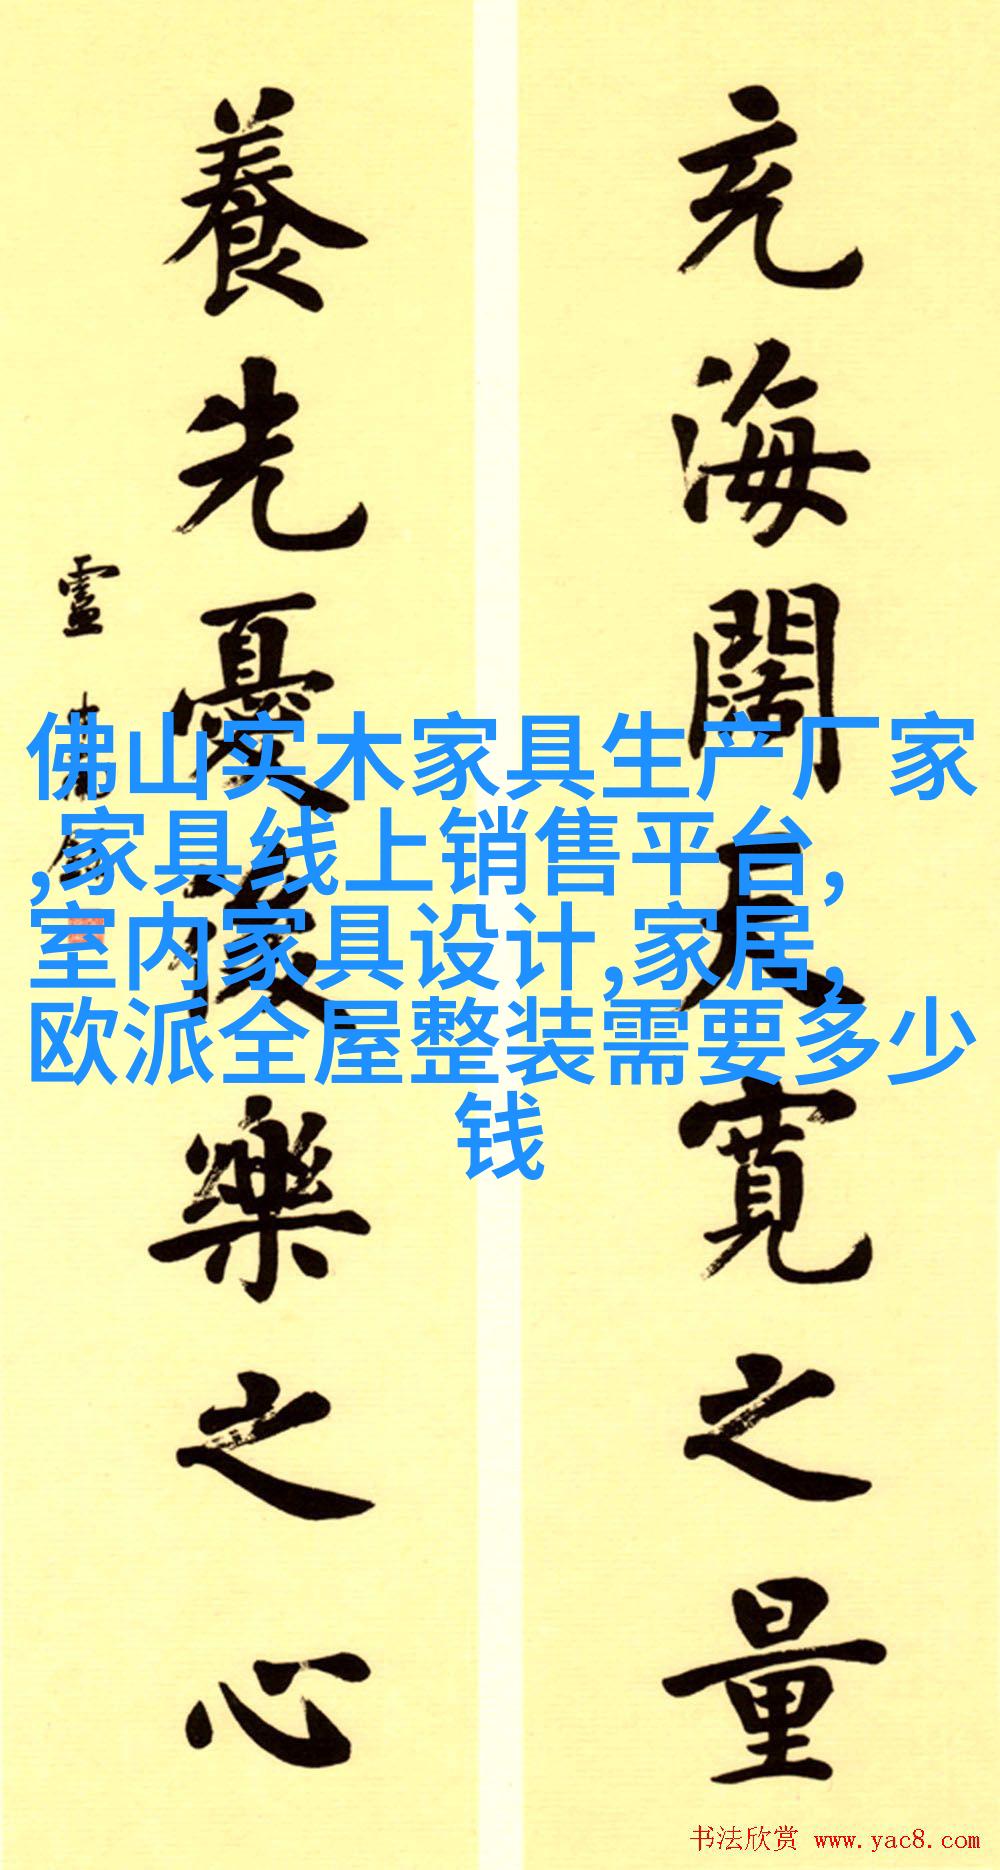 充海闊天寬之量
養先憂後樂之心
佛山实木家具生产厂家
,家具线上销售平台,
室内家具设计,家居,
欧派全屋整装需要多少
钱
书法欣赏 www.yac8.com